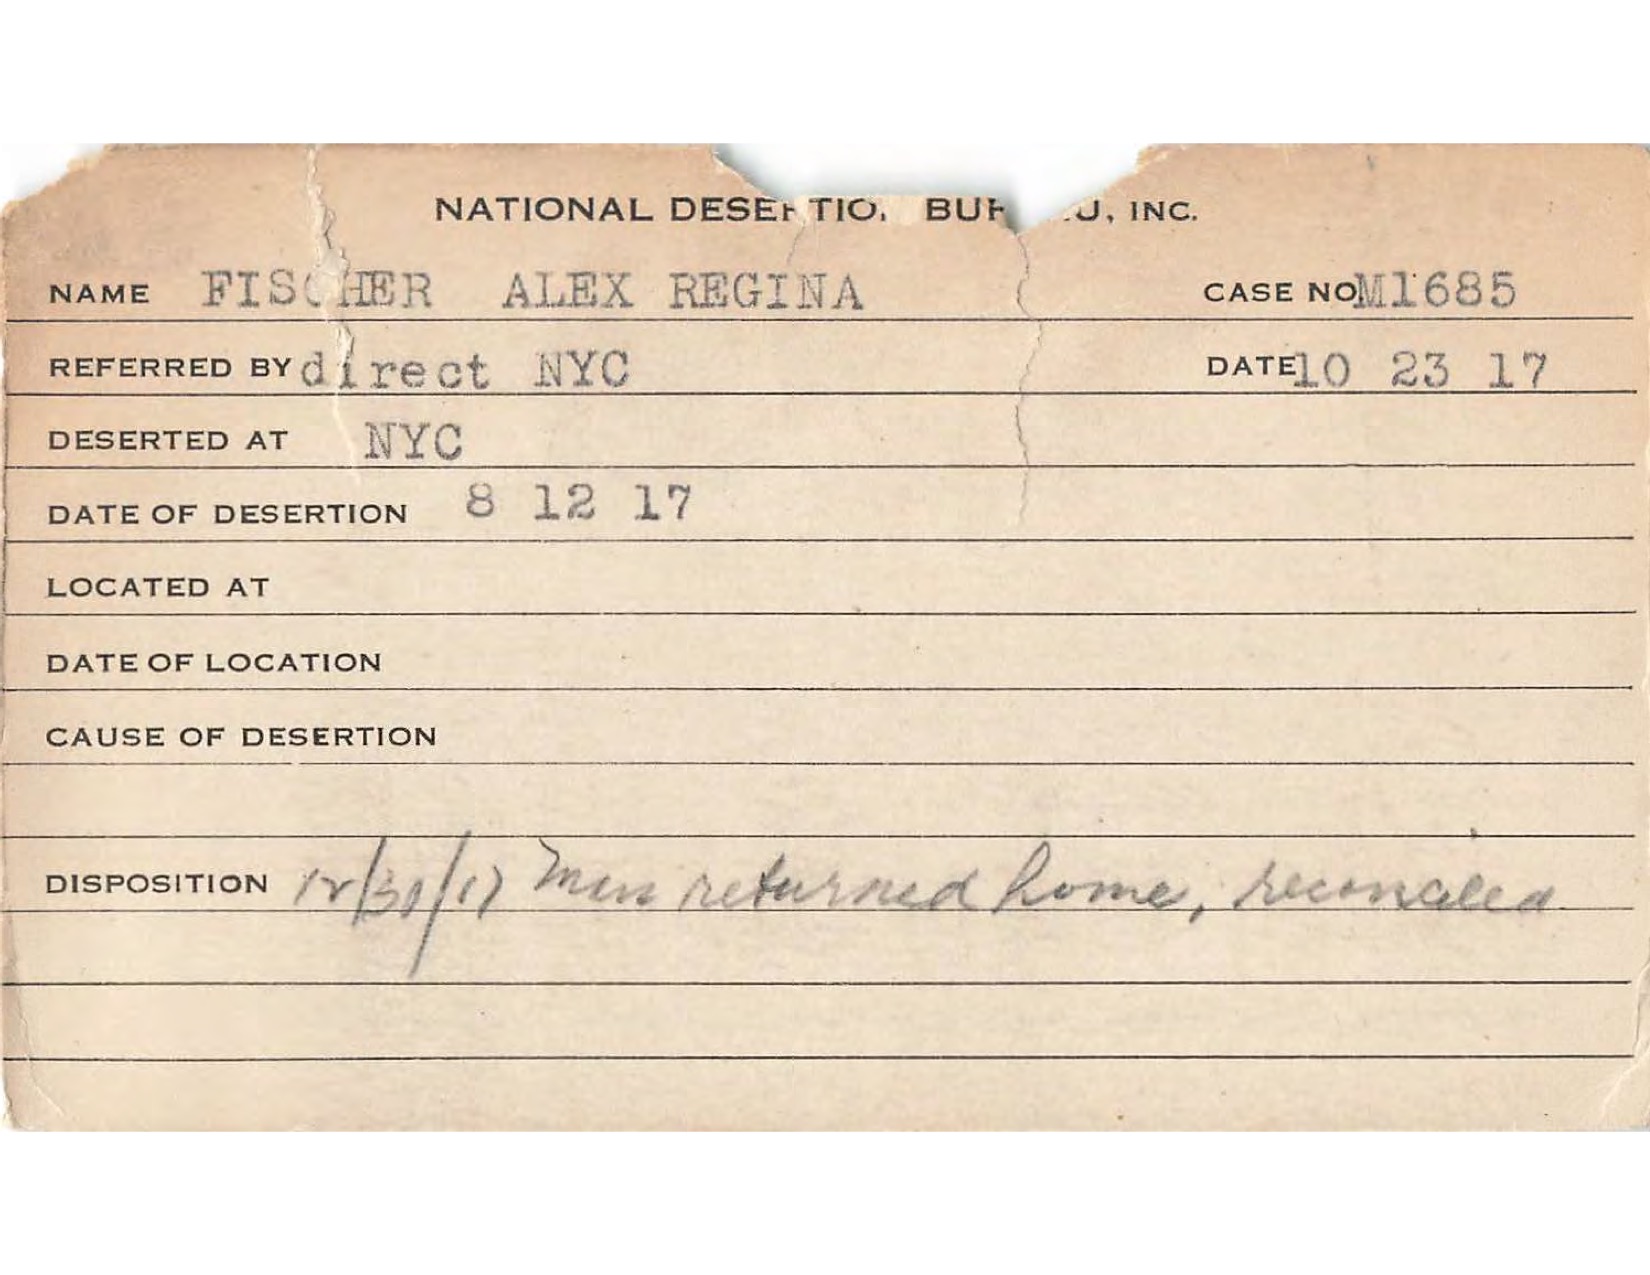 NATIONAL DESERTION BUREAU, INC.
NAME FISCHER ALEX REGINA CASE NO M1685
REFERRED BY direct NYC DATE 10 23 17
DESERTED AT NYC
DATE OF DESERTION 8 12 17
LOCATED AT
DATE OF LOCATION
CAUSE OF DESERTION
DISPOSITION 12/30/17 Man returned home, reconciled